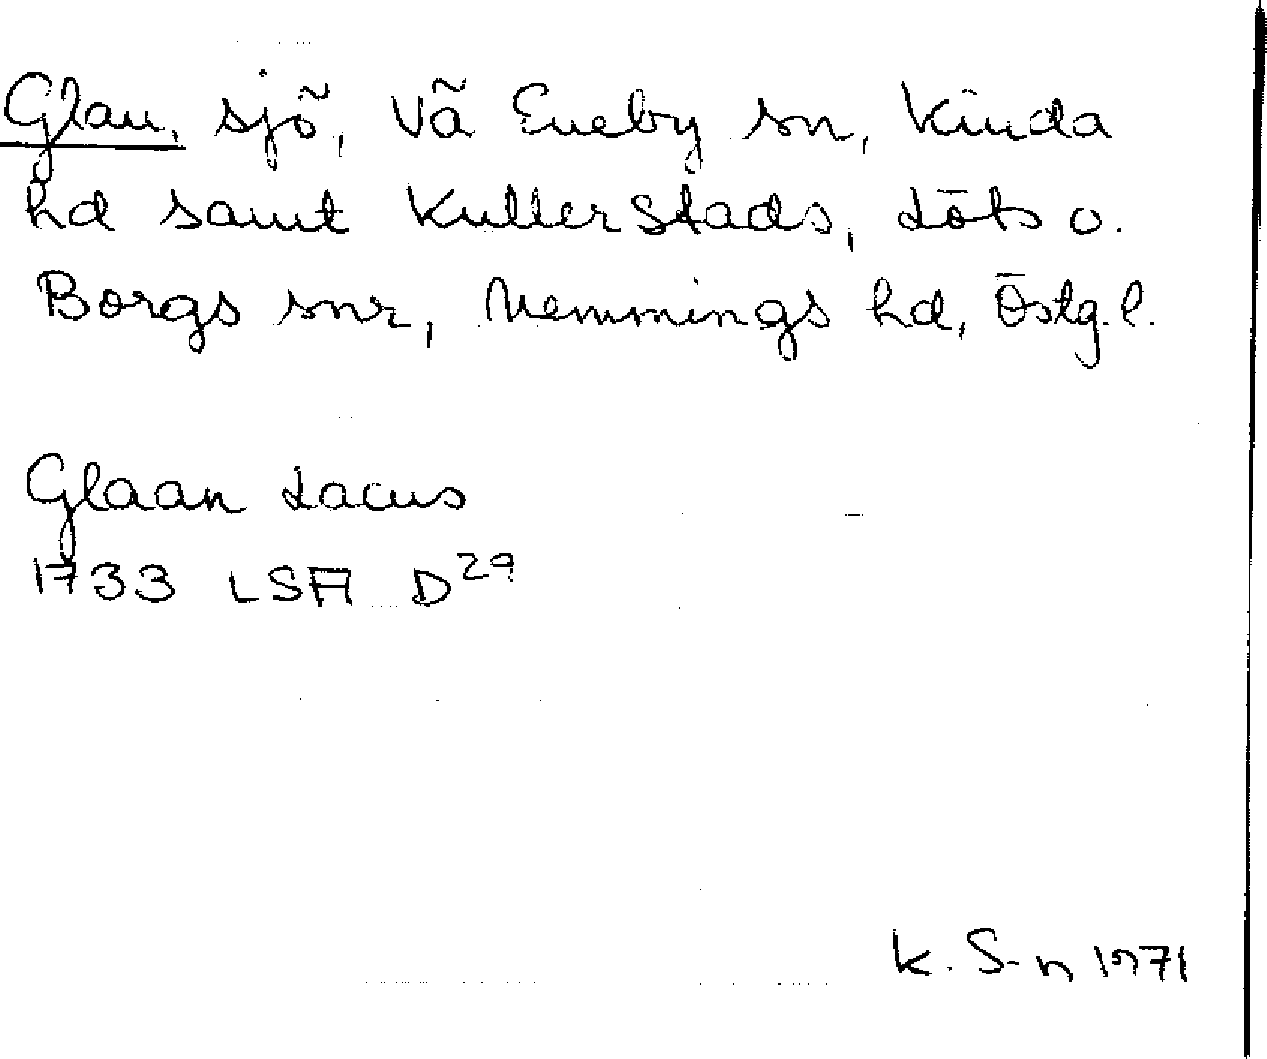 Glan, sjö, Vä Eneby sn, Kinda
hd samt Kullerstads, Löts o.
Borgs snr, Memmings hd, Östg. l.
Glaan Lacus
1733 LSA D29
K. S-n 1971